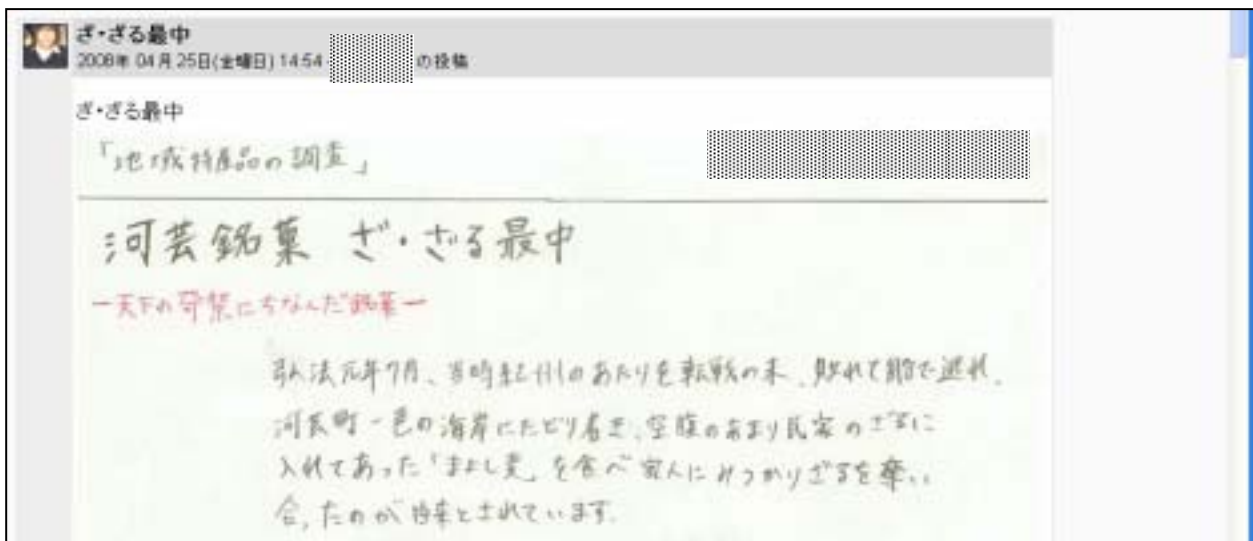 ざ・ざる最中
2008年 04月 25日(金曜日) 14:54 - の投稿
ざ・ざる最中
「地域特産品の調査」
河芸銘菓 ざ・ざる最中
ー天下の奇祭にちなんだ銘菓ー
弘法元年7月、当時紀州のあたりを転戦の末、敗れて船で逃れ、
河芸町一色の海岸にたどり着き、空腹のあまり民家のざるに
入れてあった「まよし麦」を食べ家人にみつかりざるを奪い
合ったのが由来とされています。